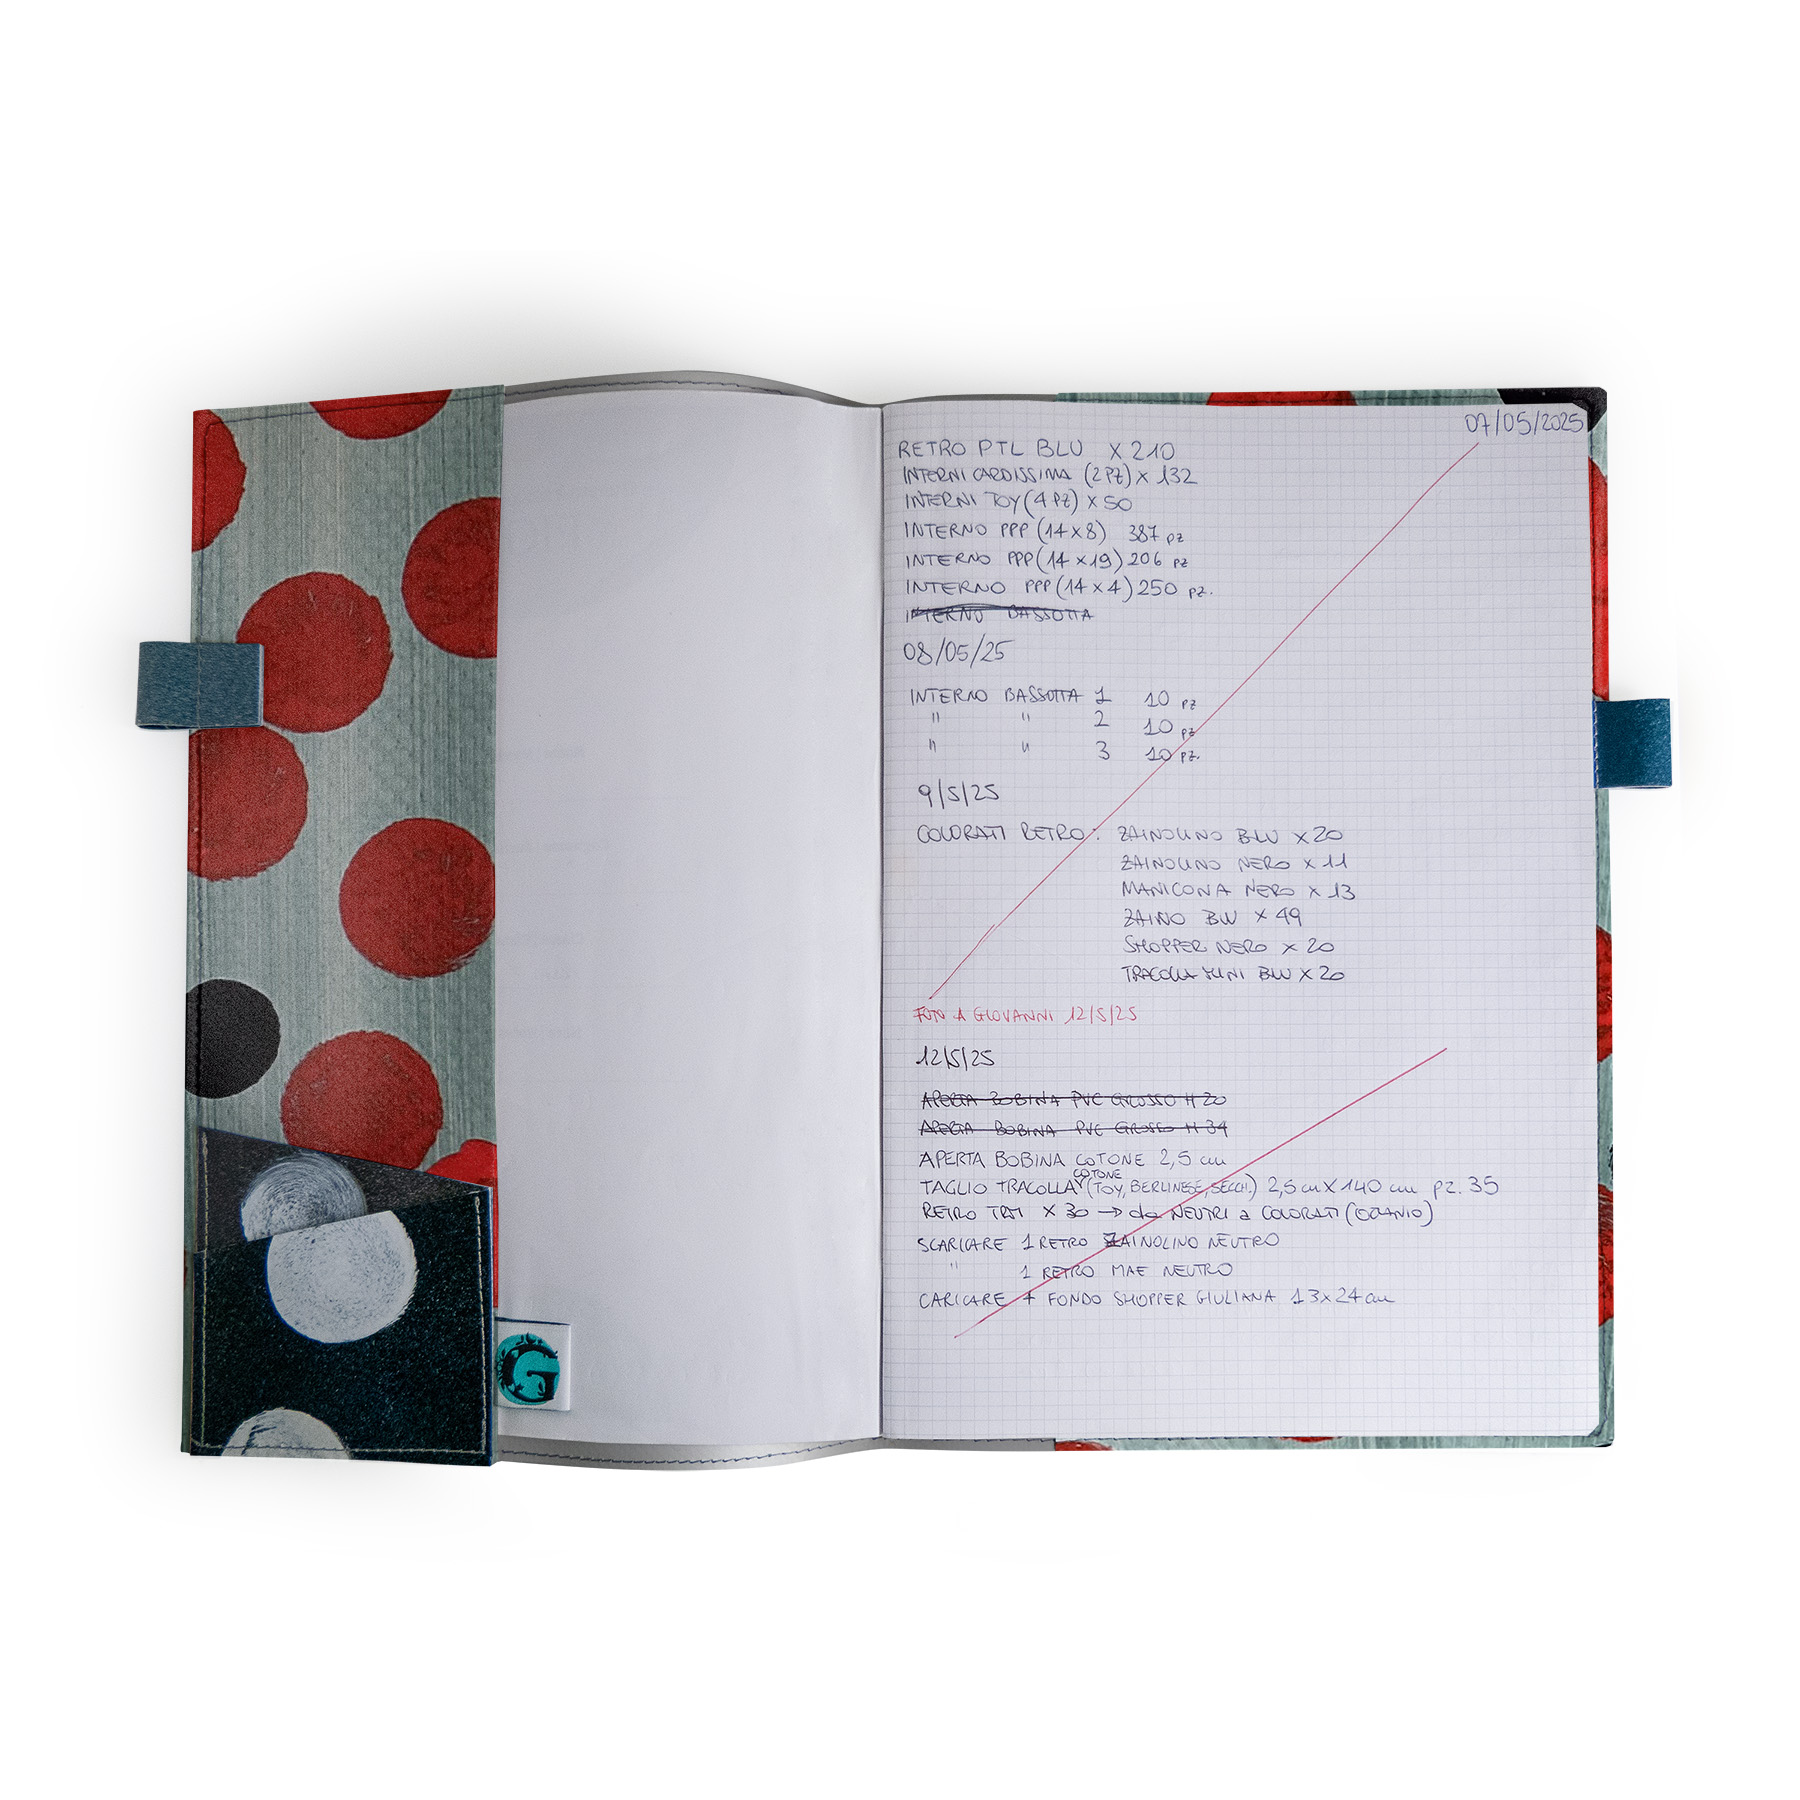 07/05/2025
RETRO PTL BLU X 210
INTERNI CARDISSIMA (2 PZ) X 132
INTERNI TOY (4 PZ) X 50
INTERNO PPP (14 x 8) 387 PZ
INTERNO PPP (14 x 19) 206 PZ
INTERNO PPP (14 x 4) 250 PZ.
INTERNO BASSOTTA
08/05/25
INTERNO BASSOTTA 1 10 PZ
" " 2 10 PZ
" " 3 10 PZ.
9/5/25
COLORATI RETRO: ZAINOLINO BLU X 20
ZAINOLINO NERO X 11
MANICONA NERO X 13
ZAINO BLU X 49
SHOPPER NERO X 20
TRACOLLA BLU X 20
FOTO A GIOVANNI 12/5/25
12/5/25
APERTA BOBINA PVC GROSSO H 20
APERTA BOBINA PVC GROSSO H 34
APERTA BOBINA COTONE 2,5 cm
TAGLIO TRACOLLA COTONE (TOY, BERLINESE, SECCHI.) 2,5 cm X 140 cm PZ. 35
RETRO X 30 → da NEUTRI a COLORATI (OTTANIO)
SCARICARE 1 RETRO ZAINOLINO NEUTRO
" 1 RETRO MAE NEUTRO
CARICARE 1 FONDO SHOPPER GIULIANA 13 x 24 cm
G